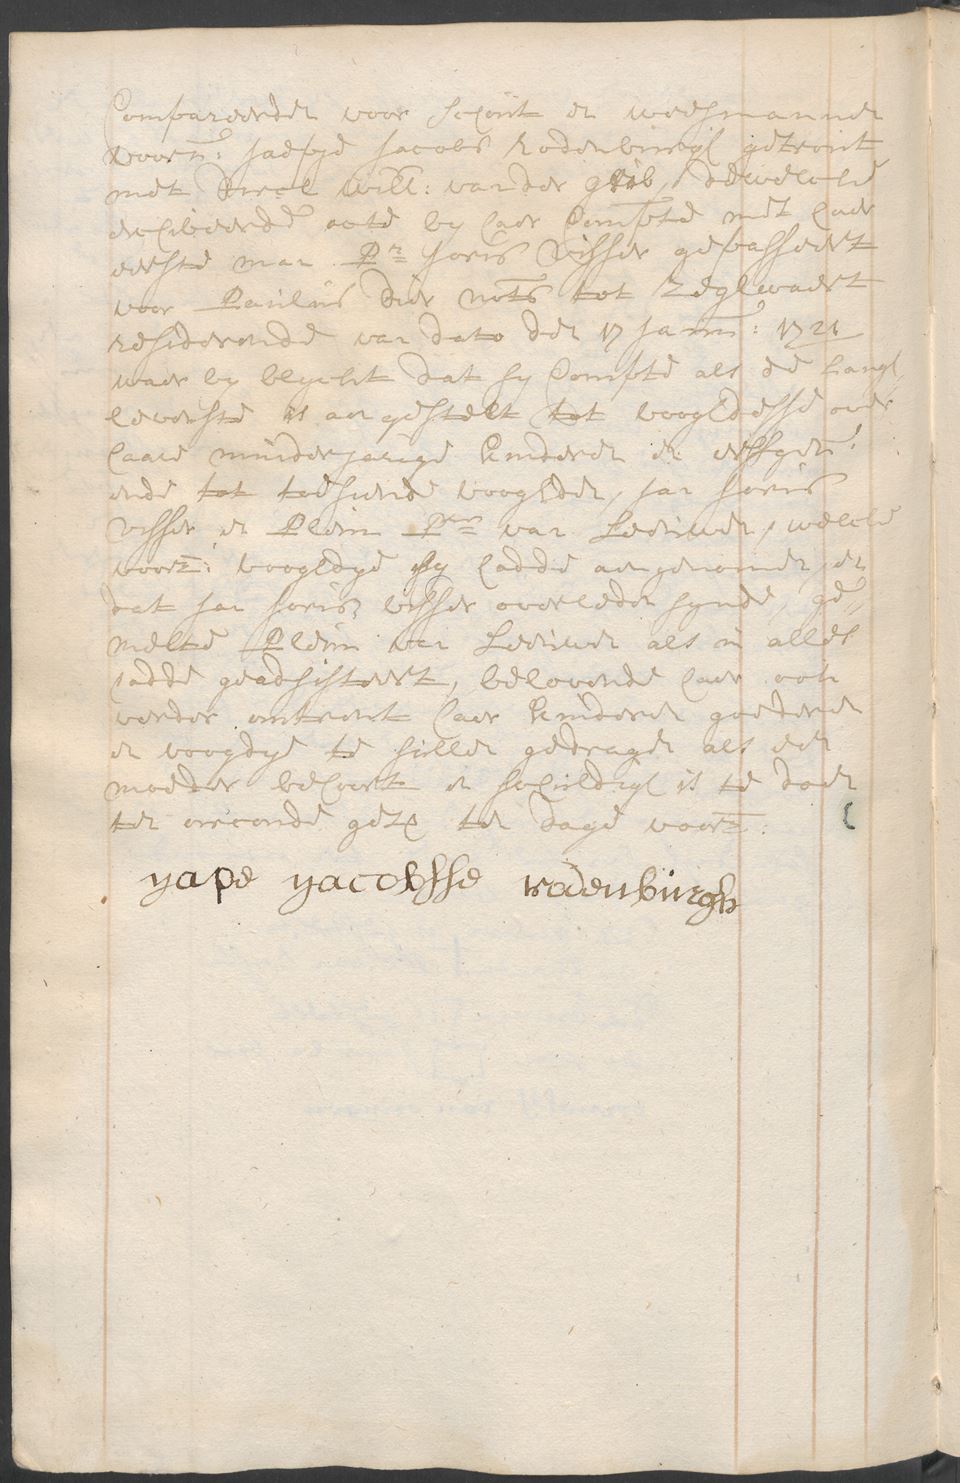 Compareerden voor schout en weesmannen
voorn: Jaepje Jacobs Rodenburgh getrout
met Dirck Will: vander grib, dewelcke
exhibeerde acte by haer Compte met haer
eerste man Pr Joris Visser gepasseert
voor Paulus Dier nots tot Zeghwaert
residerende van dato den 17 Jann: 1721
waer by blyckt dat sy Compte als de langst
levenste is aengestelt tot vooghdesse over
haare minderjarige kinderen en erffgen:
ende tot toesiende vooghden, Jan Joris
Visser en Pleun Prs van Leeuwen, welcke
voorn: vooghdye sy hadde aengenomen, en
dat Jan Joris Visser overleden synde, ge„
melte Pleun van Leeuwen als in alles
hadde geadsisteert, belovende haer ook
verder omtrent haer kinderen goederen
en voogdye te sullen gedragen als een
moeder behoort en schuldigh is te doen
ten oirconde get ten dage voorn:
yape yacobsse rodenburgh